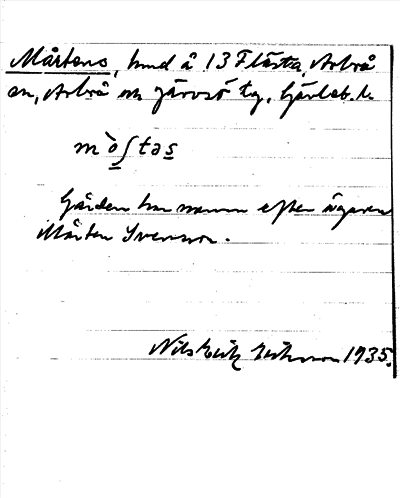 Mårtens, hmd å 13 Flästa, Arbrå
sn, Arbrå och Järvsö tg, Gävleb. l.
mò̱ʃtəs̱
Gården har namn efter ägaren
Mårten Svensson.
Nils Erik Eriksson 1935.